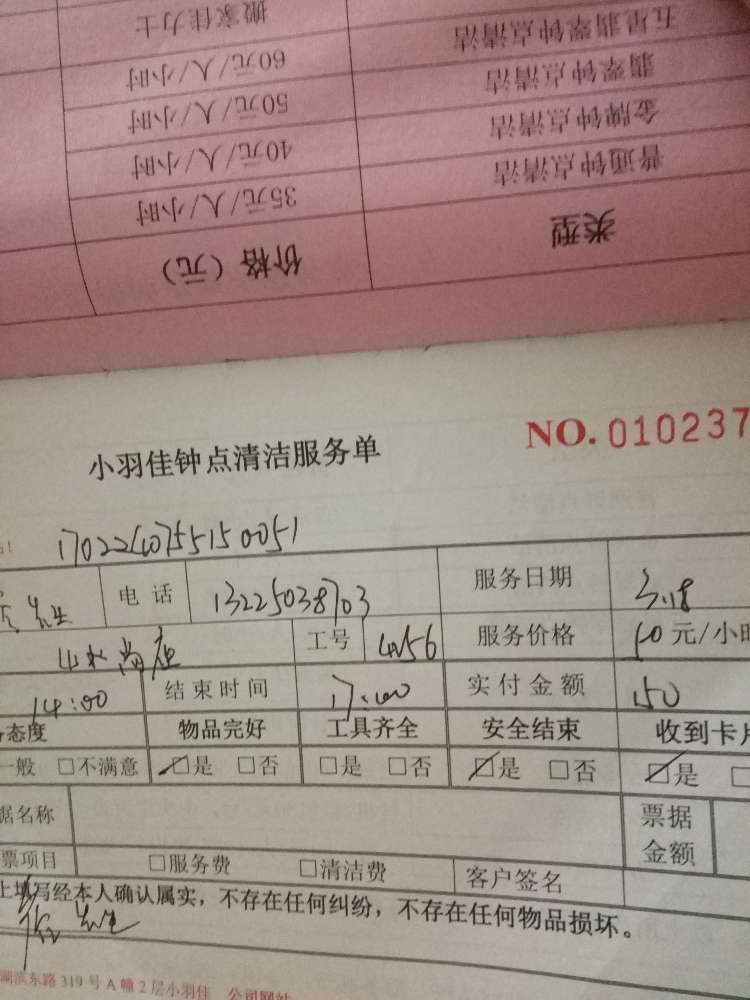 类型 价格（元）
普通钟点清洁 35元/人/小时
金牌钟点清洁 40元/人/小时
翡翠钟点清洁 50元/人/小时
五星翡翠钟点清洁 60元/人/小时
搬家佳力士
小羽佳钟点清洁服务单 NO. 010237
1702240755150051
先生 电话 13225038703 服务日期 3.18
山水尚座 工号 4056 服务价格 50元/小时
14:00 结束时间 17:00 实付金额 150
态度 物品完好 工具齐全 安全结束 收到卡片
一般 □不满意 □是 □否 □是 □否 □是 □否 □是
据名称 票据金额
票项目 □服务费 □清洁费 客户签名
上填写经本人确认属实，不存在任何纠纷，不存在任何物品损坏。
先生
湖滨东路319号A幢2层小羽佳 公司网站